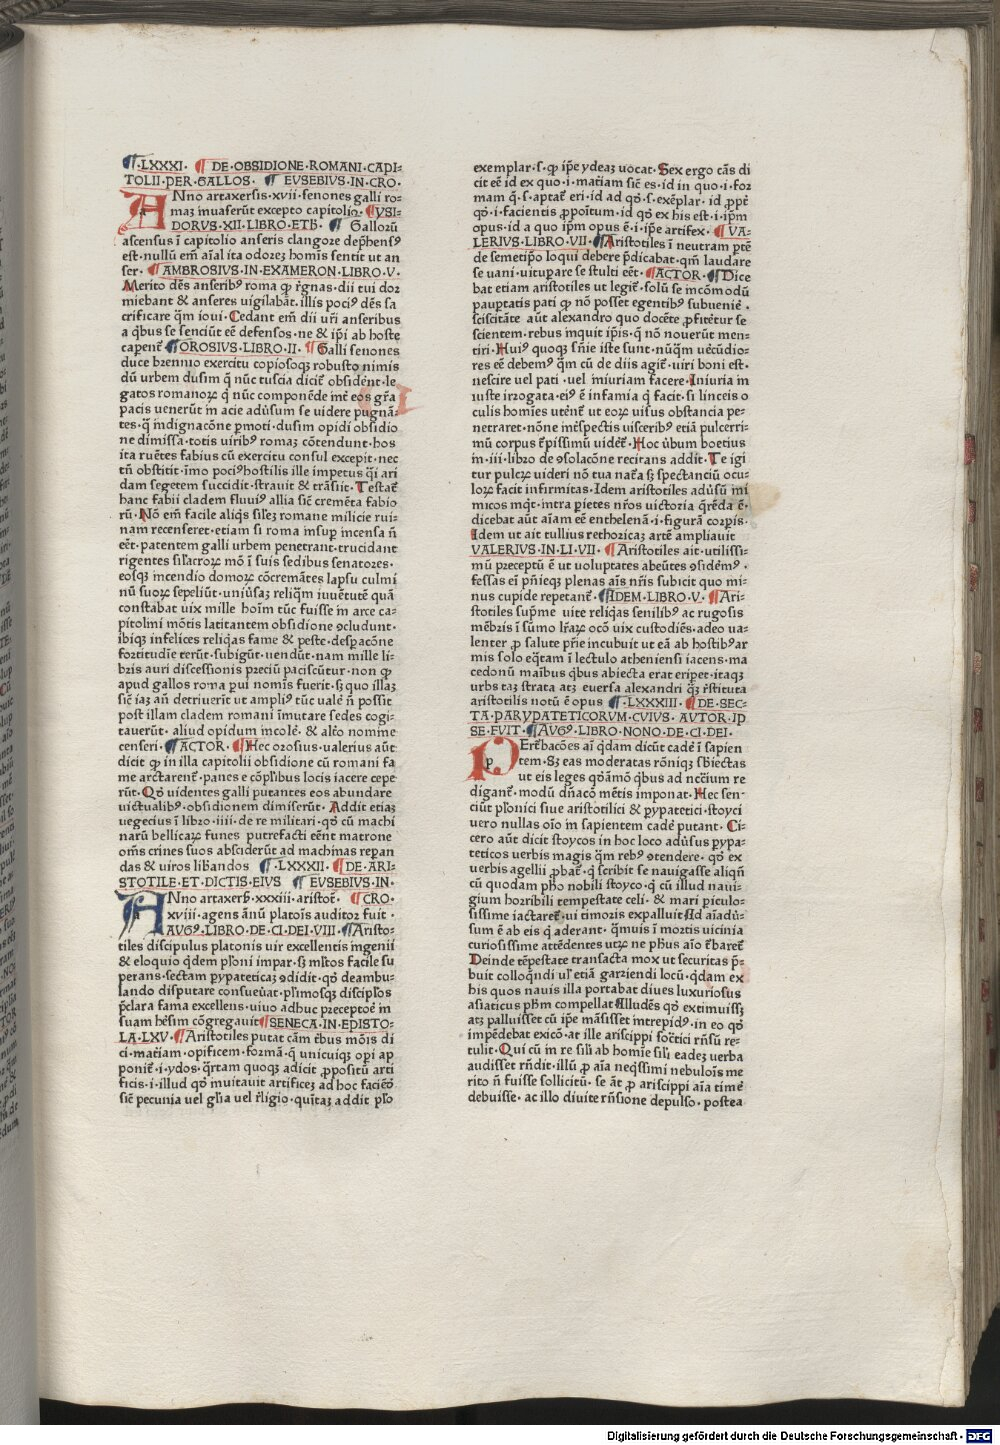 ¶·LXXXI· ¶ DE·OBSIDIONE·ROMANI·CAPI-
TOLII·PER·GALLOS· ¶ EVSEBIVS·IN·CRO·
ANno artaxersis·xvii·senones galli ro-
maȝ inuaserūt excepto capitolio· ¶YSI-
DORVS·XII·LIBRO·ETH̄· ¶ Gallorū
ascensus ī capitolio anseris clangore dep̄hensꝰ
est·nullū em̄ aīal ita odoreȝ homīs sentit ut an
ser· ¶AMBROSIVS·IN·EXAMERON·LIBRO·V·
Merito dēs anseribꝰ roma ꝙ r̄gnas·dii tui dor
miebant & anseres uigilabāt·illis pociꝰ dēs sa
crificare q̄m ioui·Cedant em̄ dii ur̄i anseribus
a q̄bus se senciūt eē defensos·ne & ip̄i ab hoste
capent̄· ¶OROSIVS·LIBRO·II· ¶ Galli senones
duce brennio exercitu copiosoqȝ robusto nimis
dū urbem dusim q̄ nūc tuscia dicit̄ obsidēnt·le
gatos romanoꝝ q̄ nūc componēde int̄ eos gr̄a
pacis uenerūt in acie aduersum se uidere pugnā-
tes·q̄ indignacōne p̄moti·dusim opidi obsidio
ne dimissa·totis uiribꝰ romaȝ cōtendunt·hos
ita ruētes fabius cū exercitu consul excepit·nec
tn̄ obstitit·īmo pociꝰhostilis ille impetus q̄i ari
dam segetem succidit·strauit & trāsiit·Testat̄
hanc fabii cladem fluuiꝰ allia siē cremēta fabio
rū·Nō em̄ facile aliq̄s sil̄eȝ romane milicie rui-
nam recenseret·etiam si roma insuꝑ incensa n̄
eēt·patentem galli urbem penetrant·trucidant
rigentes sil̄acroꝝ mō ī suis sedibus senatores·
eosqȝ incendio domoꝝ cōcremātes lapsu culmi
nū suoꝝ sepeliūt·uniūsaȝ reliq̄m iuuētutē quā
constabat uix mille hoīm tūc fuisse in arce ca-
pitolini mōtis latitantem obsidione ꝯcludunt·
ibiqȝ infelices reliq̄as fame & peste·desꝑacōne
fortitudīe terūt·subigūt·uendūt·nam mille li-
bris auri discessionis preciū paciscūtur·non ꝙ
apud gallos roma ꝑui nomis fuerit·sȝ quo illaȝ
siē iaȝ an̄ detriuerit ut ampliꝰ tūc ualē n̄ possit
post illam cladem romani īmutare sedes cogi-
tauerūt·aliud opidum īcolē·& alēo nomine
censeri·¶ACTOR·¶Hec orosius·ualerius aūt
dicit ꝙ in illa capitolii obsidione cū romani fa
me arctarent̄·panes e cōplībus locis iacere cepe
rūt·Qō uidentes galli putantes eos abundare
uictualibꝰ·obsidionem dimiserūt·Addit etiaȝ
uegecius ī libro·iiii·de re militari·qō cū machi
narū bellicaꝝ funes putrefacti eēnt matrone
om̄s crines suos absciderūt ad machinas reꝑan
das & uiros libandos ¶·LXXXII·¶DE·ARI-
STOTILE·ET·DICTIS·EIVS ¶ EVSEBIVS·IN·
ANno artaxerẋ·xxxiii·aristot̄· ¶CRO·
xviii·agens ānū platoīs auditor fuit·
AVGꝰ·LIBRO·DE·CI·DEI·VIII·¶Aristo-
tiles discipulus platonis uir excellentis ingenii
& eloquio q̄dem pl̄oni impar·sȝ ml̄tos facile su
perans·sectam ꝑypateticaȝ ꝯdidit·qō deambu-
lando disputare consueūat·pl̄imosqȝ discipl̄os
p̄clara fama excellens·uiuo adhuc p̄ceptoē in
suam hēsim cōgregauit ¶SENECA·IN·EPISTO-
LA·LXV·¶Aristotiles putat cām t̄bus mōis di
ci·māriam·opificem·formā·q̄ unicuiqȝ opi ap
ponit̄·i·ydos·q̄rtam quoqȝ adicit ꝓpositū arti
ficis·i·illud qō inuitauit artificeȝ ad hoc faciēō
siē pecunia uel gl̄ia uel r̄ligio·quītaȝ addit pl̄o
exemplar·s·ꝙ ip̄e ydeaȝ uocat·Sex ergo cās di
cit eē id ex quo·i·matīam siē es·id in quo·i·for
mam q̄·s·aptat̄ eri·id ad qō·s·exēplar·id ꝓpt̄
qō·i·facientis ꝓpōitum·id qō ex his est·i·ip̄m
opus·id a quo ip̄m opus ē·i·ip̄e artifex·¶VA-
LERIVS·LIBRO·VII·¶Aristotiles ī neutram ꝑtē
de semetip̄o loqui debere p̄dicabat·qm̄ laudare
se uani·uituꝑare se stulti eēt·¶ACTOR·¶Dice
bat etiam aristotiles ut legit̄·solū se incōmodū
pauꝑtatis pati ꝙ nō posset egentibꝰ subueniē·
sciscitāte aūt alexandro quo docēte ꝓfitētur se
scientem·rebus inquit ip̄is·q̄ nō nouerūt men-
tiri·Huiꝰ quoqȝ sn̄ie iste sunt·nūq̄m uēcūdio-
res eē debemꝰ q̄m cū de diis agit̄·uiri boni est·
nescire uel pati·uel iniuriam facere·Iniuria in
iuste irrogata·eiꝰ ē infamia q̄ facit·si linceis o
culis homīes utēnt̄ ut eoꝝ uisus obstancia pe-
netraret·nōne inēspectis uisceribꝰ etiā pulcerri-
mū corpus t̄pissimū uidēt̄·Hoc ūbum boetius
in·iii·libro de ꝯsolacōne recitans addit·Te igi
tur pulcꝝ uideri nō tua nat̄a sȝ spectanciū ocu-
loꝝ facit infirmitas·Idem aristotiles adūsū mi
micos inq̄t·intra ꝑietes nr̄os uictoria q̄rēda ē·
dicebat aūt aīam eē enthelenā·i·figurā corꝑis·
Idem ut ait tullius rethoricaȝ artē ampliauit
VALERIVS·IN·LI·VII· ¶Aristotiles ait·utilissi-
mū preceptū ē ut uoluptates abeūtes ꝯsidēmꝰ·
fessas ei pn̄ieqȝ plenas aīs nr̄is subicit quo mi-
nus cupide repetant̄·¶IDEM·LIBRO·V·¶Ari-
stotiles sup̄me uite reliq̄as senilibꝰ ac rugosis
mēbris ī sūmo lr̄aꝝ ocō uix custodiēs·adeo ua-
lenter ꝓ salute pr̄ie incubuit ut eā ab hostibꝰar
mis solo eq̄tam ī lectulo atheniensi iacens·ma
cedonū maībus q̄bus abiecta erat eriꝑet·itaqȝ
urbs taȝ strata atȝ euersa alexandri q̄ȝ r̄stituta
aristotilis notū ē opus ¶·LXXXIII·¶DE·SEC-
TA·PARYPATETICORVM·CVIVS·AVTOR·IP
SE·FVIT·¶AVGꝰ·LIBRO·NONO·DE·CI·DEI·
PErt̄bacōes aī q̄dam dicūt cadē ī sapien
tem·Sȝ eas moderatas rōniqȝ sb̄iectas
ut eis leges qōāmō q̄bus ad nc̄ium re
digant̄·modū dn̄acō mētis imponat·Hec sen-
ciūt pl̄onici siue aristotilici & ꝑypatetici·stoyci
uero nullas oīo in sapientem cadē putant·Ci-
cero aūt dicit stoycos in hoc loco adūsus ꝑypa-
teticos uerbis magis q̄m rebꝰ ꝯtendere·qō ex
uerbis agellii ꝓbat̄·q̄ scribit se nauigasse aliqn̄
cū quodam ph̄o nobili stoyco·q̄ cū illud naui-
gium horribili tempestate celi·& mari ꝑiculo-
sissime iactaret̄·ui timoris expalluit Id aīadū-
sum ē ab eis q̄ aderant·q̄muis ī mortis uicinia
curiosissime attēdentes utꝝ ne ph̄us aīo t̄baret̄
Deinde tēpestate transacta mox ut securitas p̄-
buit colloq̄ndi ul̄ etiā garziendi locū·q̄dam ex
his quos nauis illa portabat diues luxuriosus
asiaticus ph̄m compellat ¶lludēs qō extimuissȝ
atȝ palluisset cū ip̄e māsisset intrepidꝰ·in eo qō
impēdebat exicō·at ille ariscippi soc̄tici rn̄sū re-
tulit·Qui cū in re sili ab homīe sili eadeȝ uerba
audisset rn̄dit·illū ꝓ aīa neq̄ssimi nebulonis me
rito n̄ fuisse sollicitū·se āt ꝓ ariscippi aīa timē
debuisse·ac illo diuite rn̄sione depulso·postea
Digitalisierung gefördert durch die Deutsche Forschungsgemeinschaft - DFG